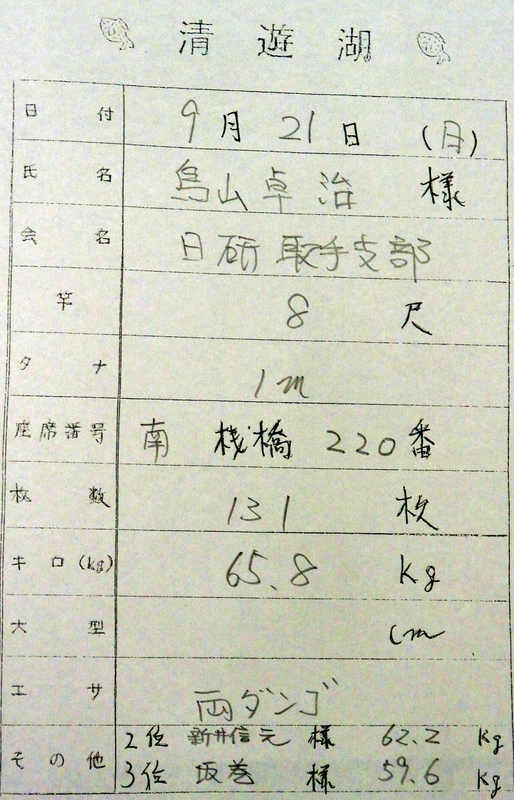 清遊湖
日付 9月21日 (日)
氏名 鳥山卓治 様
会名 日研 取手支部
竿 8 尺
タナ 1m
座席番号 南 桟橋 220番
枚数 131 枚
キロ(kg) 65.8 kg
大型 cm
エサ 両ダンゴ
その他 2位 新井信元 様 62.2 kg
3位 坂巻 様 59.6 kg